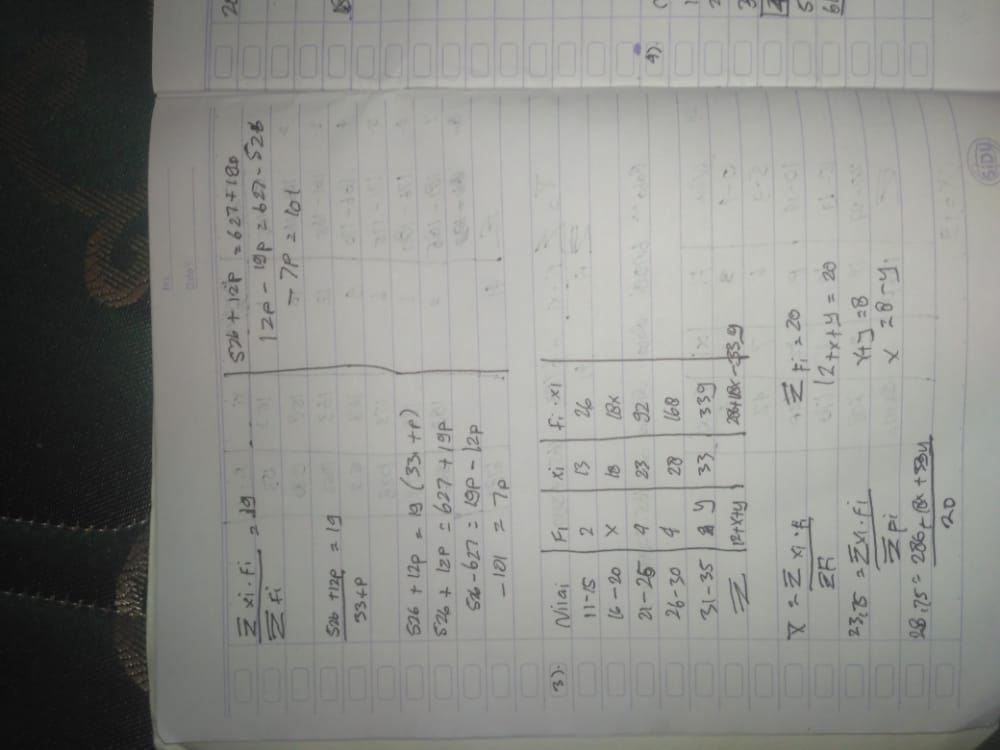 Σ xi . fi = 19
Σ fi
526 + 12p = 19
33 + p
526 + 12p = 19 (33 + p)
526 + 12p = 627 + 19p
526 - 627 = 19p - 12p
-101 = 7p
526 + 12p = 627 + 19p
12p - 19p = 627 - 526
- 7p = 101
3). Nilai Fi xi Fi . xi
11 - 15 2 13 26
16 - 20 x 18 18x
21 - 25 4 23 92
26 - 30 28 168
31 - 35 y 33 33y
Σ 12+x+y 286+18x 33y
X = Σ xi . fi
ΣFi
23,75 = Σxi . fi
Σ
28,75 = 286 + 18x + 33y
20
Σ Fi = 20
12 + x + y = 20
x + y = 8
x = 8 - y.
4).
SIDU